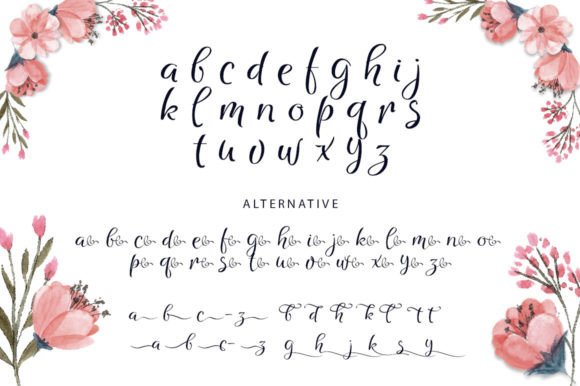 a b c d e f g h i j
k l m n o p q r s
t u v w x y z
ALTERNATIVE
a b c d e f g h i j k l m n o
p q r s t u v w x y z
a b c z b d h k l tt
a b c z g h j k s y